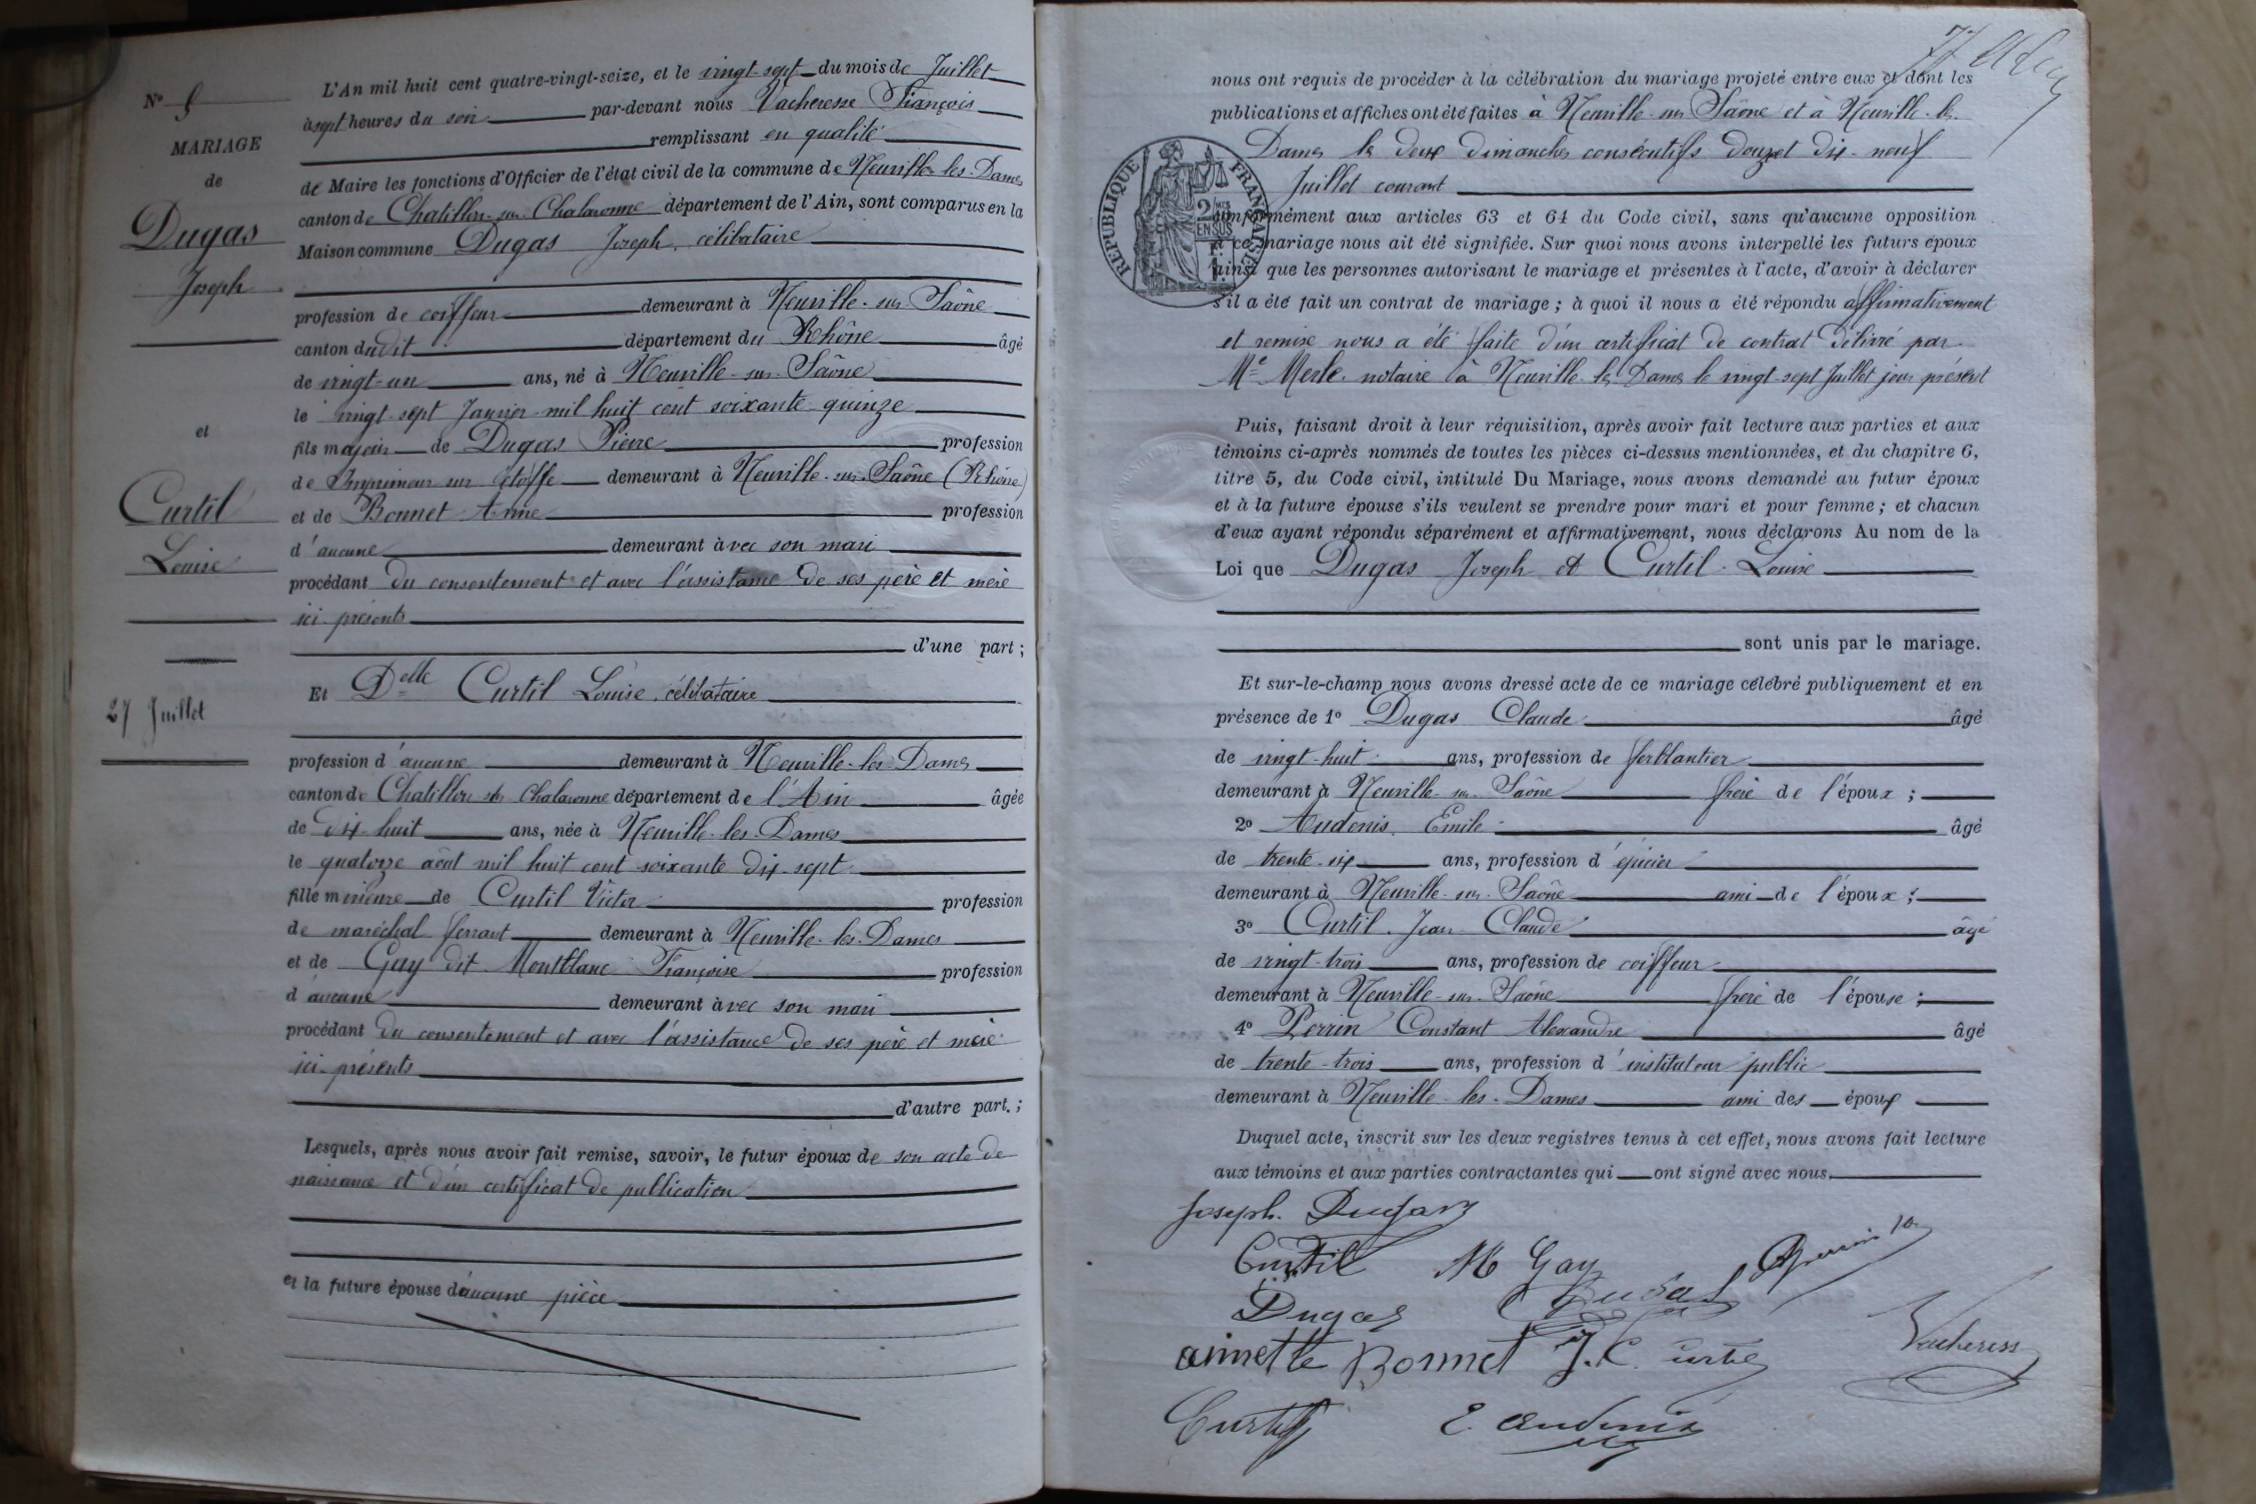 L'An mil huit cent quatre-vingt-seize, et le vingt sept du mois de Juillet
à sept heures du soir par-devant nous Vacheresse François
remplissant en qualité
de Maire les fonctions d'Officier de l'état civil de la commune de Neuville-les-Dames
canton de Chatillon-sur-Chalaronne département de l'Ain, sont comparus en la
Maison commune Dugas Joseph, célibataire
profession de coiffeur demeurant à Neuville-sur-Saône
canton dudit département du Rhône âgé
de vingt-un ans, né à Neuville-sur-Saône
le vingt-sept Janvier mil huit cent soixante quinze
fils majeur de Dugas Pierre profession
de Imprimeur sur étoffe demeurant à Neuville-sur-Saône (Rhône)
et de Bonnet Anne profession
d'aucune demeurant avec son mari
procédant du consentement et avec l'assistance de ses père et mère
ici présents
d'une part;
Et Delle Curtil Louise, célibataire
profession d'aucune demeurant à Neuville-les-Dames
canton de Chatillon sur Chalaronne département de l'Ain âgée
de dix huit ans, née à Neuville-les-Dames
le quatorze août mil huit cent soixante dix-sept
fille mineure de Curtil Victor profession
de maréchal ferrant demeurant à Neuville-les-Dames
et de Guy dit Montblanc Françoise profession
d'aucune demeurant avec son mari
procédant du consentement et avec l'assistance de ses père et mère
ici présents
d'autre part.;
Lesquels, après nous avoir fait remise, savoir, le futur époux de son acte de
naissance et d'un certificat de publication
et la future épouse d'aucune pièce
N° 5
MARIAGE
de
Dugas
Joseph
et
Curtil
Louise
27 Juillet
nous ont requis de procéder à la célébration du mariage projeté entre eux et dont les
publications et affiches ont été faites à Neuville-sur-Saône et à Neuville-les-
Dames les deux dimanches consécutifs douze et dix-neuf
Juillet courant
conformément aux articles 63 et 64 du Code civil, sans qu'aucune opposition
à ce mariage nous ait été signifiée. Sur quoi nous avons interpellé les futurs époux
ainsi que les personnes autorisant le mariage et présentes à l'acte, d'avoir à déclarer
s'il a été fait un contrat de mariage; à quoi il nous a été répondu affirmativement
et remise nous a été faite d'un certificat de contrat délivré par
Me Merle, notaire à Neuville-les-Dames le vingt-sept Juillet jour présent
Puis, faisant droit à leur réquisition, après avoir fait lecture aux parties et aux
témoins ci-après nommés de toutes les pièces ci-dessus mentionnées, et du chapitre 6,
titre 5, du Code civil, intitulé Du Mariage, nous avons demandé au futur époux
et à la future épouse s'ils veulent se prendre pour mari et pour femme; et chacun
d'eux ayant répondu séparément et affirmativement, nous déclarons Au nom de la
Loi que Dugas Joseph et Curtil Louise
sont unis par le mariage.
Et sur-le-champ nous avons dressé acte de ce mariage célébré publiquement et en
présence de 1o Dugas Claude âgé
de vingt-huit ans, profession de ferblantier
demeurant à Neuville-sur-Saône frère de l'époux;
2o Audenis Emile âgé
de trente-six ans, profession d'épicier
demeurant à Neuville-sur-Saône ami de l'époux;
3o Curtil Jean-Claude âgé
de vingt-trois ans, profession de coiffeur
demeurant à Neuville-sur-Saône frère de l'épouse;
4o Perrin Constant Alexandre âgé
de trente-trois ans, profession d'instituteur public
demeurant à Neuville-les-Dames ami des époux
Duquel acte, inscrit sur les deux registres tenus à cet effet, nous avons fait lecture
aux témoins et aux parties contractantes qui ont signé avec nous.
RÉPUBLIQUE FRANÇAISE
Joseph Dugas
Curtil M Gay
Dugas Dugas
annette Bonnet J. C. Curtil
Vacheress
Curtil E. Audenis